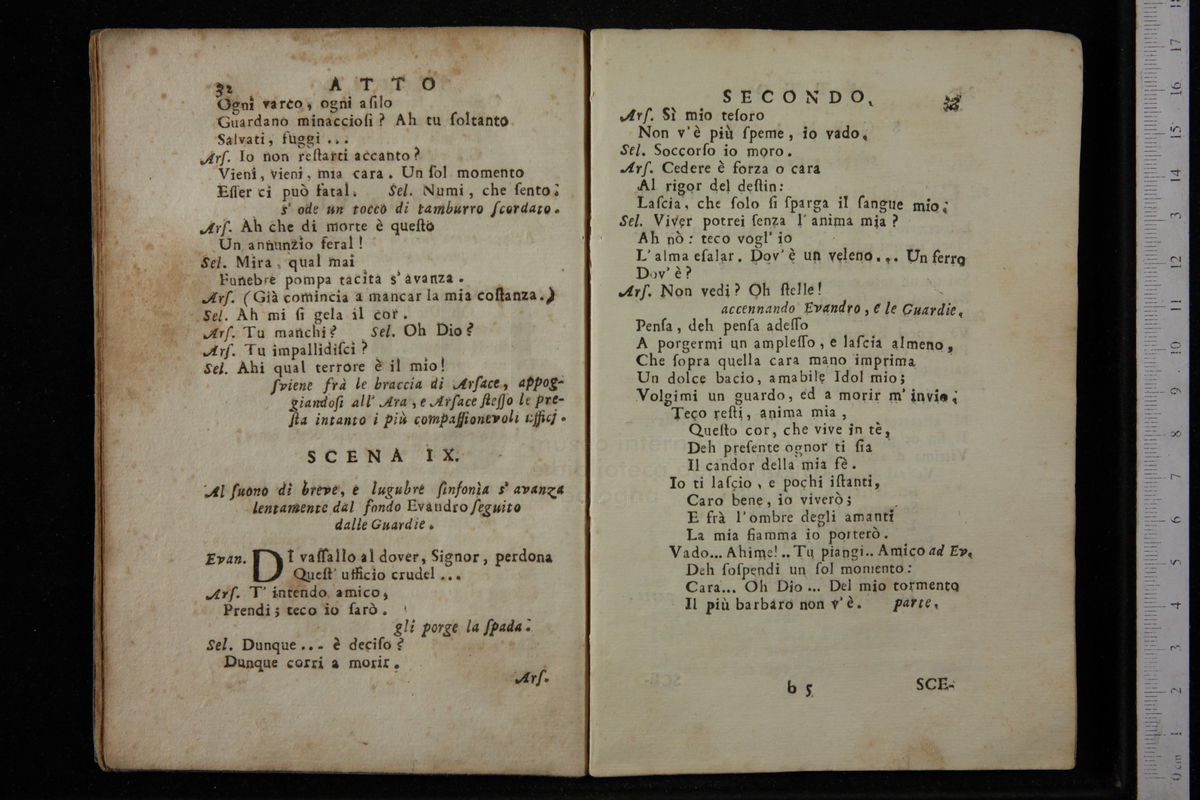 32 ATTO
Ogni varco, ogni aſilo
Guardano minaccioſi? Ah tu ſoltanto
Salvati, fuggi ...
Arſ. Io non reſtarti accanto?
Vieni, vieni, mia cara. Un ſol momento
Eſſer ci può fatal. Sel. Numi, che ſento!
s' ode un tocco di tamburro ſcordato.
Arſ. Ah che di morte è queſto
Un annunzio feral!
Sel. Mira, qual mai
Funebre pompa tacita s'avanza.
Arſ. (Già comincia a mancar la mia coſtanza.)
Sel. Ah mi ſi gela il cor.
Arſ. Tu manchi? Sel. Oh Dio?
Arſ. Tu impallidiſci?
Sel. Ahi qual terrore è il mio!
ſviene frà le braccia di Arſace, appog-
giandoſi all' Ara, e Arſace ſteſſo le pre-
ſta intanto i più compaſſionevoli uffícj.
SCENA IX.
Al ſuono di breve, e lugubre ſinfonìa s' avanza
lentamente dal fondo Evandro ſeguito
dalle Guardie.
Evan. DI vaſſallo al dover, Signor, perdona
Queſt' ufficio crudel ...
Arſ. T' intendo amico,
Prendi; teco io ſarò.
gli porge la ſpada.
Sel. Dunque ... è deciſo?
Dunque corri a morir.
Arſ.
SECONDO.
Arſ. Sì mio teſoro
Non v'è più ſpeme, io vado.
Sel. Soccorſo io moro.
Arſ. Cedere è forza o cara
Al rigor del deſtin:
Laſcia, che ſolo ſi ſparga il ſangue mio;
Sel. Viver potrei ſenza l'anima mia?
Ah nò: teco vogl' io
L'alma eſalar. Dov'è un veleno... Un ferro
Dov'è?
Arſ. Non vedi? Oh ſtelle!
accennando Evandro, e le Guardie.
Penſa, deh penſa adeſſo
A porgermi un ampleſſo, e laſcia almeno,
Che ſopra quella cara mano imprima
Un dolce bacio, amabile Idol mio;
Volgimi un guardo, ed a morir m'invio;
Teco reſti, anima mia,
Queſto cor, che vive in tè,
Deh preſente ognor ti ſia
Il candor della mia fè.
Io ti laſcio, e pochi iſtanti,
Caro bene, io viverò;
E frà l'ombre degli amanti
La mia fiamma io porterò.
Vado... Ahime!.. Tu piangi.. Amico ad Ev.
Deh ſoſpendi un ſol momento:
Cara... Oh Dio... Del mio tormento
Il più barbaro non v'è. parte.
b 5 SCE-